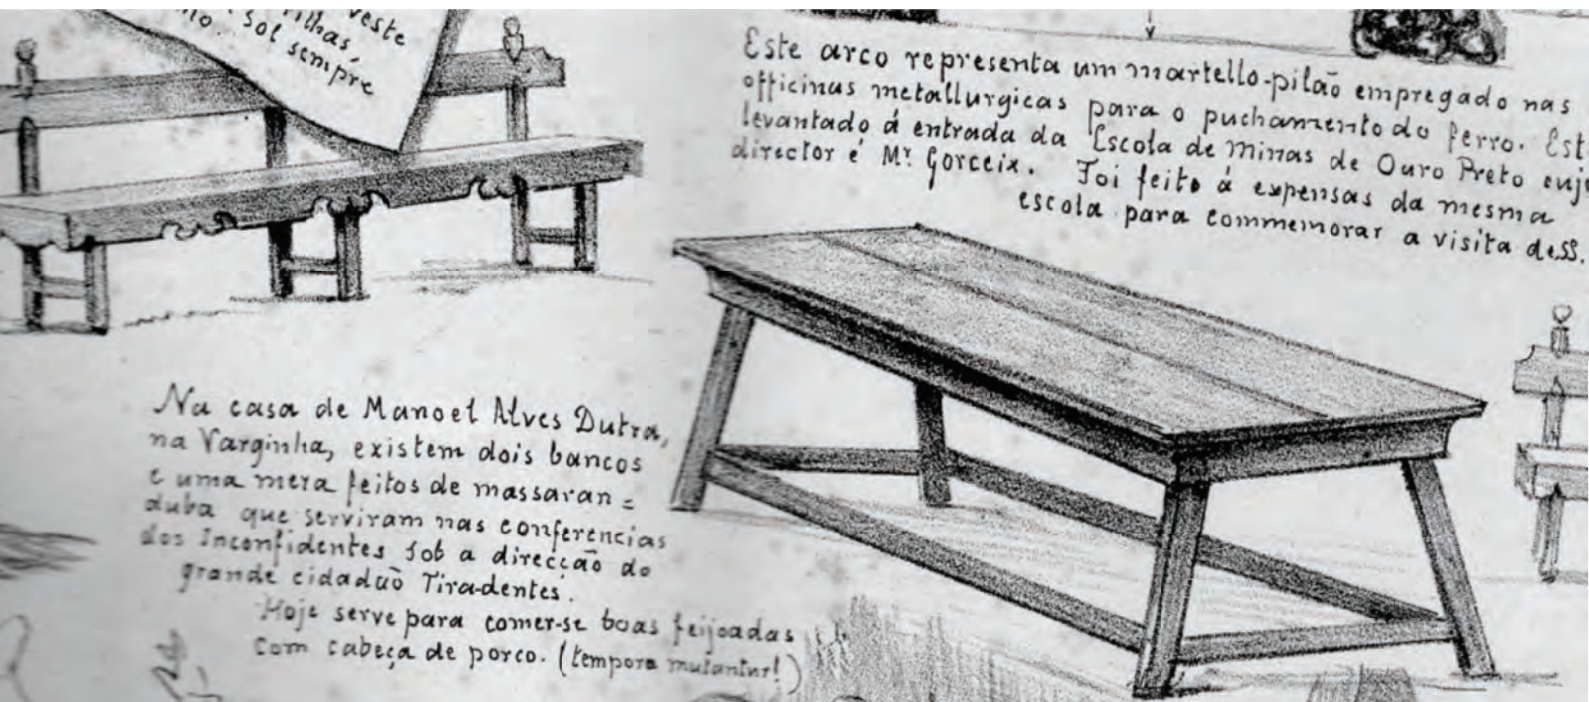 veste
filhas,
Sol sempre
Este arco representa um martello-pilão empregado nas
officinas metallurgicas para o puchamento do ferro. Est
levantado á entrada da Escola de Minas de Ouro Preto cuj
director é Mr. Gorceix. Foi feito á expensas da mesma
escola para commemorar a visita de SS.
Na casa de Manoel Alves Dutra,
na Varginha, existem dois bancos
e uma meza feitos de massaran=
duba que serviram nas conferencias
dos Inconfidentes sob a direcção do
grande cidadão Tiradentes.
Hoje serve para comer-se boas feijoadas
com cabeça de porco. (tempora mutantur!)